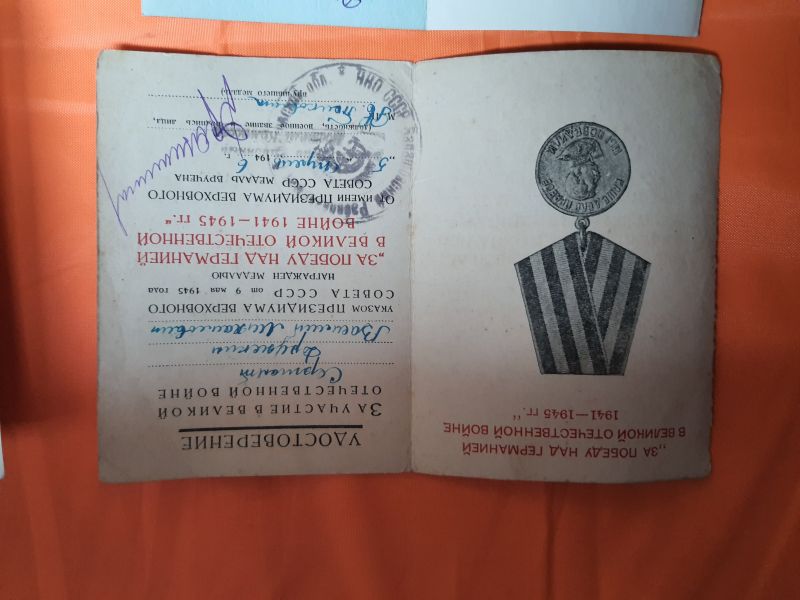 „ЗА ПОБЕДУ НАД ГЕРМАНИЕЙ
В ВЕЛИКОЙ ОТЕЧЕСТВЕННОЙ ВОЙНЕ
1941—1945 гг.“
НАШЕ ДЕЛО ПРАВОЕ
МЫ ПОБЕДИЛИ
УДОСТОВЕРЕНИЕ
ЗА УЧАСТИЕ В ВЕЛИКОЙ
ОТЕЧЕСТВЕННОЙ ВОЙНЕ
Сержант
Дружинин
Василий Михайлович
УКАЗОМ ПРЕЗИДИУМА ВЕРХОВНОГО
СОВЕТА СССР от 9 мая 1945 года
НАГРАЖДЕН МЕДАЛЬЮ
„ЗА ПОБЕДУ НАД ГЕРМАНИЕЙ
В ВЕЛИКОЙ ОТЕЧЕСТВЕННОЙ
ВОЙНЕ 1941—1945 гг.“
ОТ ИМЕНИ ПРЕЗИДИУМА ВЕРХОВНОГО
СОВЕТА СССР МЕДАЛЬ ВРУЧЕНА
„5 1946 г.
(должность, военное звание и подпись лица,
вручившего медаль)
НКО СССР